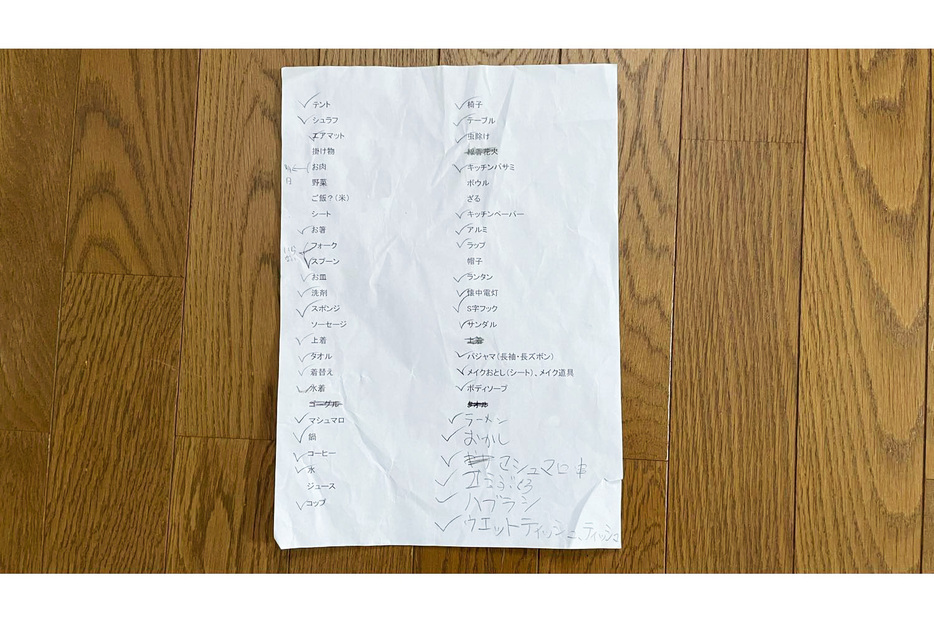 テント
シュラフ
エアマット
掛け物
お肉
野菜
ご飯?(米)
シート
お箸
フォーク
スプーン
お皿
洗剤
スポンジ
ソーセージ
上着
タオル
着替え
水着
ゴーグル
マシュマロ
鍋
コーヒー
氷
ジュース
コップ
椅子
テーブル
虫除け
線香花火
キッチンバサミ
ボウル
ざる
キッチンペーパー
アルミ
ラップ
帽子
ランタン
懐中電灯
S字フック
サンダル
上着
パジャマ(長袖・長ズボン)
メイクおとし(シート)、メイク道具
ボディソープ
タオル
ラーメン
おかし
マシュマロ
ゴミぶくろ
ハブラシ
ウエットティッシュ、ティッシュ